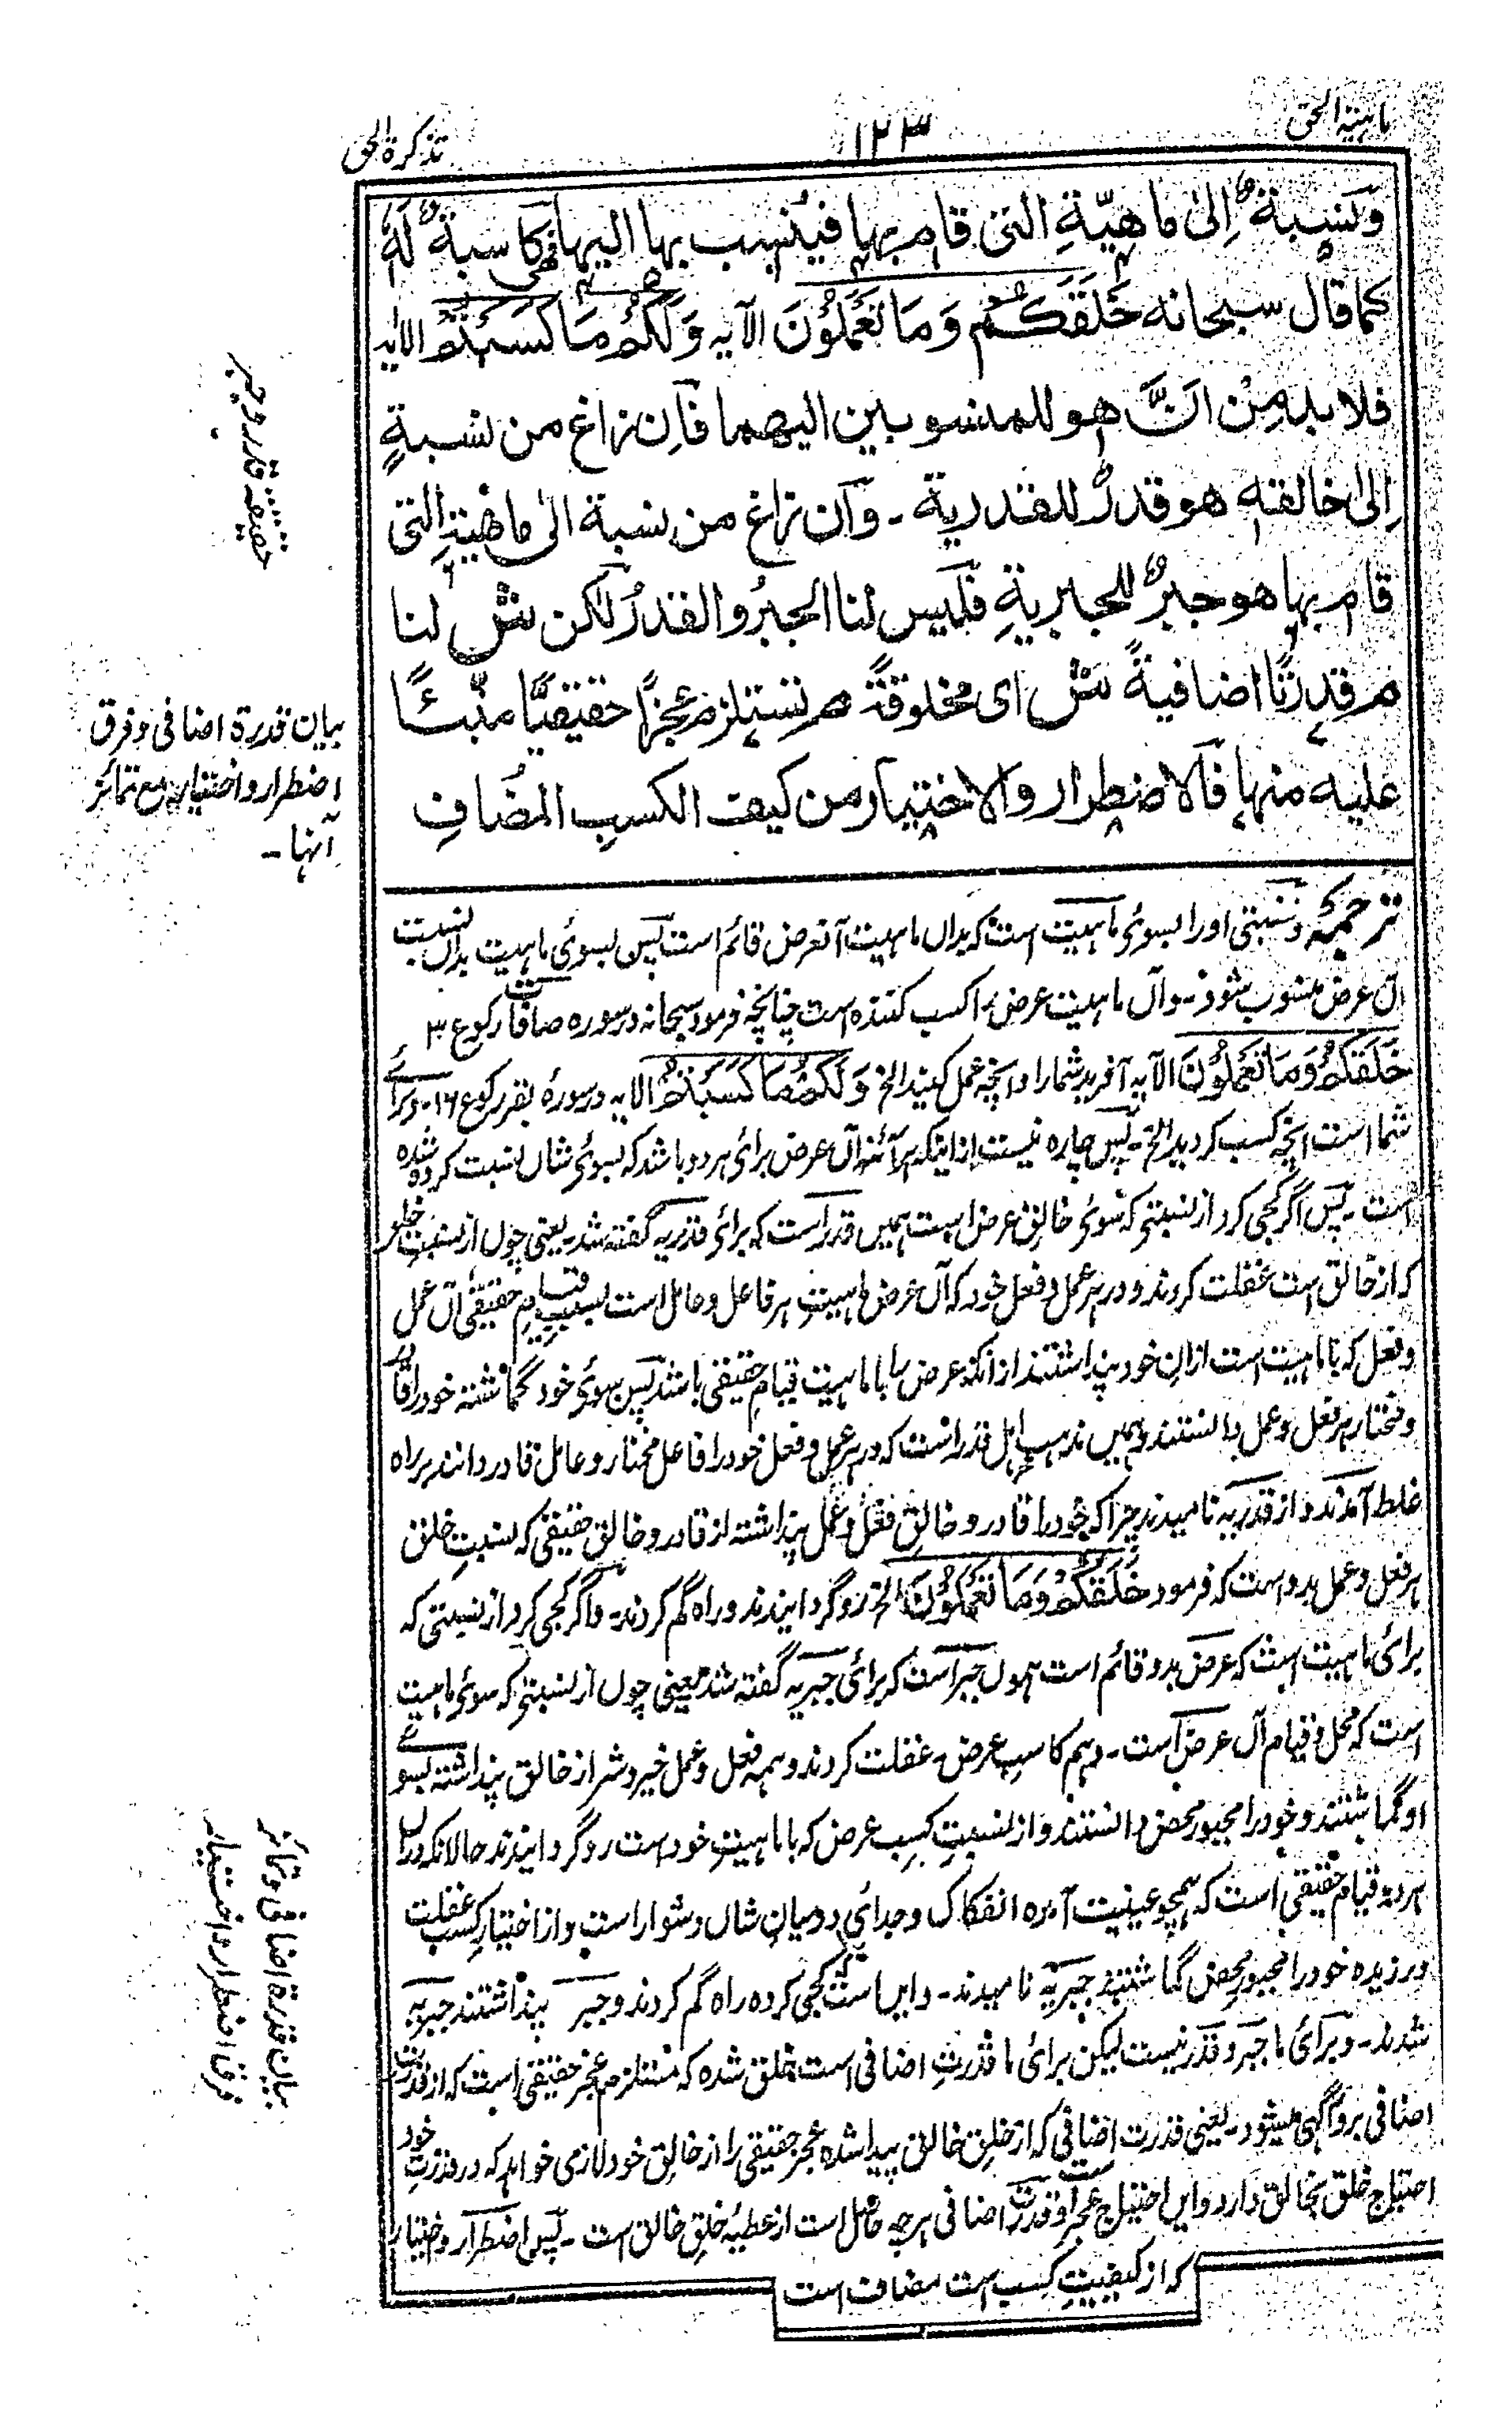 ماہیۃ الحق
١٢٣
تذکرۃ الحق
ونسبة إلى ماهيّةِ التى قام بها فيُنسب بها اليها فهى كاسبة له
كما قال سبحانه خَلَقَكُمْ وَمَا تَعْمَلُوْنَ الآيه وَلَكُمْ مَا كَسَبْتُمْ الايه
فلا بد مِنْ انَّ هو للمنسوبين اليهما فاِن زاغ من نسبةٍ
اِلىٰ خالقه هو قدرٌ للقدرية ۔ وآن زاغ من نسبة الىٰ ماهيةِ التى
قام بها هو جبرٌ للجبريةِ فليس لنا الجبرُ والقدرُ لٰكن ش لنا
م قدرةً اضافيةً ش اى مخلوقة م تستلزم عجزًا حقيقيًّا منبّئًا
عليه منها فالاضطرار والاختيار من كيف الكسبِ المضافِ
حقیقۃ قدر و جبر
بیان قدرۃ اضافی و فرق
اضطرار و اختیار مع تمائز
آنہا ۔
ترجمہ و نسبتی اورا بسوئ ماہیت است کہ بداں ماہیت آنعرض قائم است پس بسوئ ماہیت بداں نسبت
آن عرض منسوب شود ۔ وآں ماہیت عرض را کسب کنندہ است چنانچہ فرمود سبحانہ در سورہ صافات رکوع ٣
خَلَقَكُمْ وَمَا تَعْمَلُوْنَ الآیہ آفرید شمارا و آنچہ عمل کنید الخ وَلَكُمْ مَا كَسَبْتُمْ الایہ در سورۂ بقر رکوع ١٦ ۔ و برائے
شما است آنچہ کسب کردید الخ ۔ پس چارہ نیست از اینکہ ہر آئنہ آں عرض برائ ہر دو باشد کہ بسوئ شاں نسبت کردہ شدہ
است ۔ پس اگر کجی کرد از نسبتی کہ سوئ خالق عرض است ہمیں قدر است کہ برائ قدریہ گفتہ شد ۔ یعنی چوں از نسبت خلق
کہ از خالق است غفلت کردند و در ہر عمل و فعل خود کہ آں عرض ماہیت ہر فاعل و عامل است بسبب قیام حقیقئ آں عمل
و فعل کہ با ماہیت است ازان خود پنداشتند ازانکہ عرض را با ماہیت قیام حقیقی باشد پس بسوئ خود گماشتہ خود را قادر
و مختار ہر فعل و عمل دانستند و ہمیں مذہب اہل قدر است کہ در ہر عمل و فعل خود را فاعل مختار و عامل قادر دانند بر راہ
غلط آمدند و از قدریہ نامیدند چرا کہ خود را قادر و خالق فعل و عمل پنداشتہ از قادر و خالق حقیقی کہ نسبت خلق
ہر فعل و عمل بدو است کہ فرمود خَلَقَكُمْ وَمَا تَعْمَلُوْنَ الخ روگردانیدند و راہ گم کردند ۔ و اگر کجی کرد از نسبتی کہ
برائ ماہیت است کہ عرض بدو قائم است ہموں جبر است کہ برائ جبریہ گفتہ شد یعنی چوں از نسبتی کہ سوئ ماہیت
است کہ محل و قیام آں عرض است ۔ و ہم کاسب عرض ۔ غفلت کردند و ہمہ فعل و عمل خیر و شر از خالق پنداشتہ بسوئے
او گماشتند و خود را مجبور محض دانستند و از نسبت کسب عرض کہ با ماہیت خود است روگردانیدند حالانکہ دراں
ہر دو قیام حقیقی است کہ ہمچو عینیت آمدہ انفکاک و جدائ درمیان شاں دشوار است و از اختیار کسب غفلت
ورزیدہ خود را مجبور محض گماشتند جبریہ نامیدند ۔ و ایں است کجی کردہ راہ گم کردند و جبر پنداشتند جبریہ
شدند ۔ و برائ ما جبر و قدر نیست لیکن برائ ما قدرت اضافی است خلق شدہ کہ مستلزم عجز حقیقی است کہ از قدرت
اضافی برو آگہی میشود ۔ یعنی قدرت اضافی کہ از خلق خالق پیدا شدہ عجز حقیقی را از خالق خود لازمی خواہد کہ در قدرت خود
احتیاج خلق بخالق دارد و ایں احتیاج عجز است و قدرت اضافی ہرچہ حاصل است از عطیۂ خلق خالق است ۔ پس اضطرار و اختیار
کہ از کیفیت کسب است مضاف است
بیان قدرۃ اضافی و تمائز
فرق اضطرار و اختیار